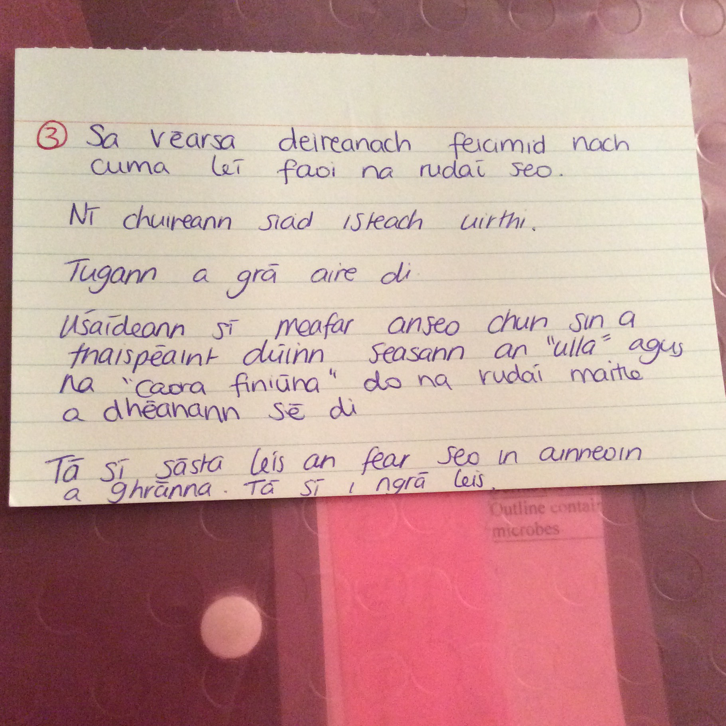 ③ Sa véarsa deireanach feicimid nach
cuma léi faoi na rudaí seo.
Ní chuireann siad isteach uirthi.
Tugann a grá aire di
Úsáideann sí meafar anseo chun sin a
thaispéaint dúinn seasann an "ulla" agus
na "caora finiúna" do na rudaí maithe
a dhéanann sé di
Tá sí sásta leis an fear seo in ainneoin
a ghránna. Tá sí i ngrá leis.
Outline contai
microbes